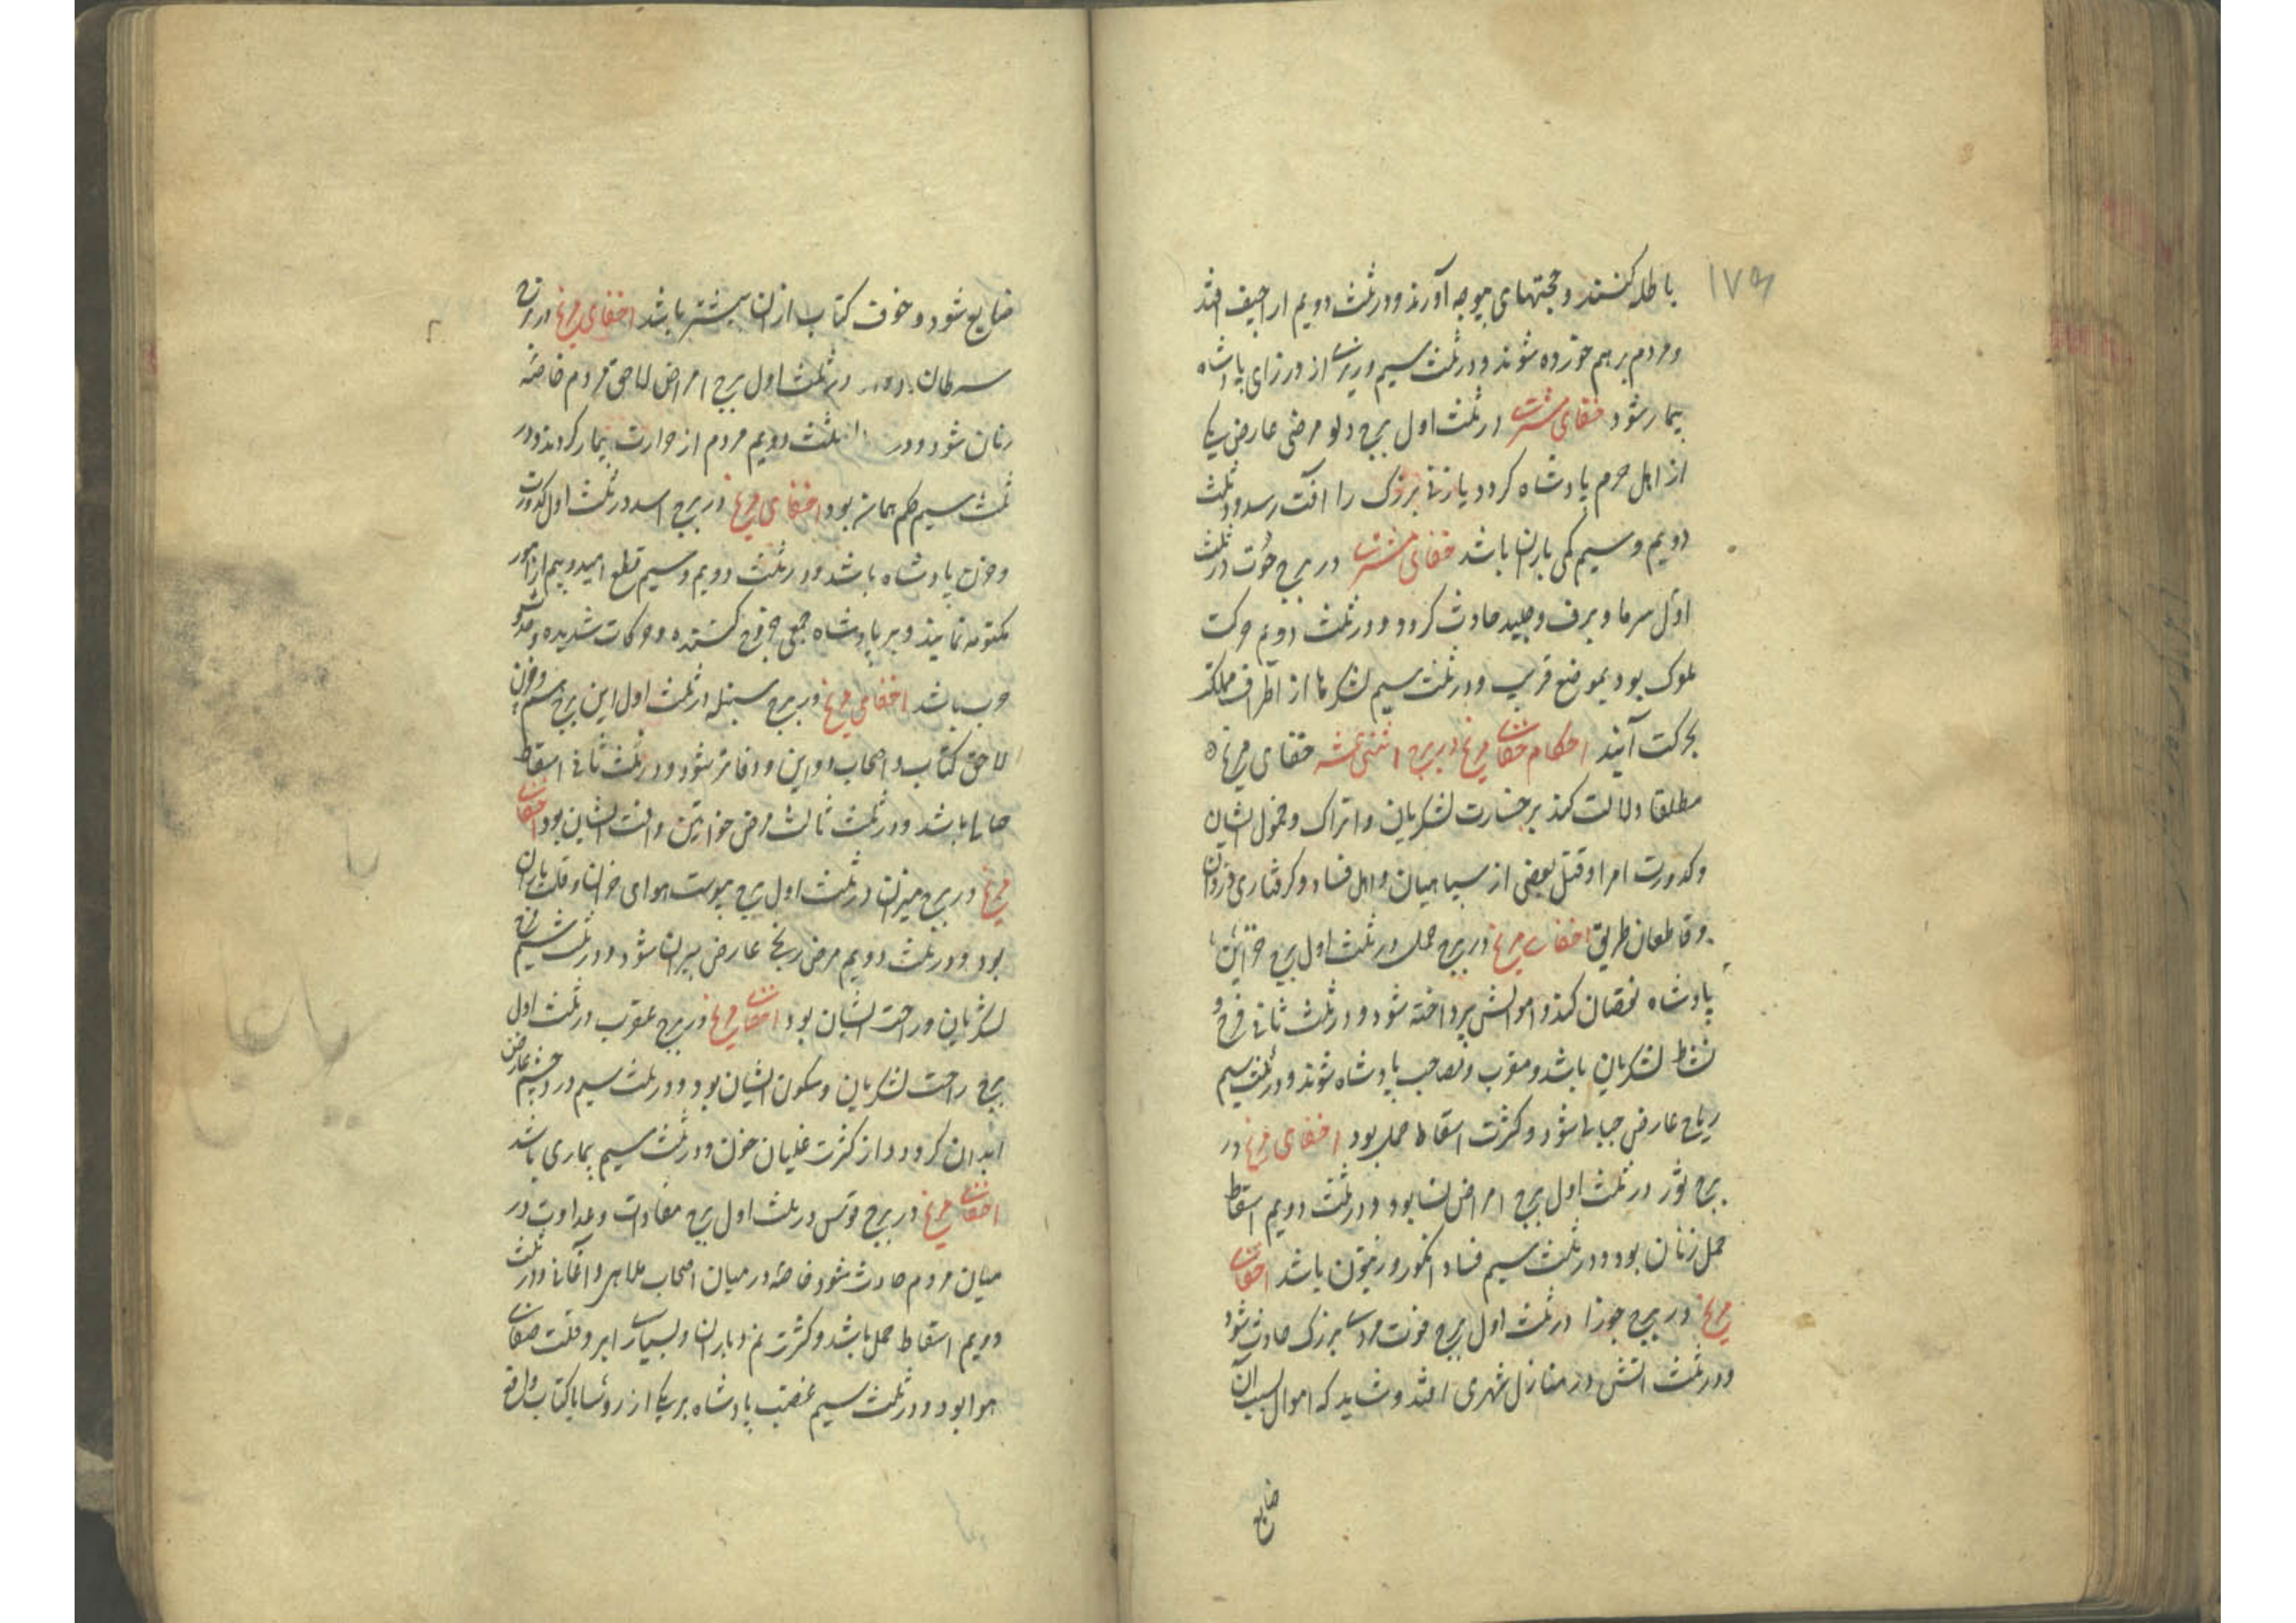 ۱۷۹
باطله کنند و حجتهای بیوجه آورند و در ثلث دویم اراجیف افتد
و مردم برهم خورده شوند و در ثلث سیم وزیری از وزرای پادشاه
بیمار شود خفای مشتری در ثلث اول برج دلو مرضی عارض یکی
از اهل حرم پادشاه کردد یا زنی بزرک را افت رسد و در ثلث
دویم و سیم کمی باران باشد خفای مشتری در برج حوت در ثلث
اول سرما و برف و جلید حادث کردد و در ثلث دویم حرکت
ملوک بود بموضع قریب و در ثلث سیم لشکرها از اطراف مملکت
بحرکت آیند احکام خفای مریخ در برج اثنی عشر خفای مریخ
مطلقا دلالت کند بر خسارت لشکریان و اتراک و خمول ایشان
و کدورت امرا و قتل بعضی از سپاهیان و اهل فساد و کرفتاری دزدان
و قاطعان طریق اخفای مریخ در برج حمل در ثلث اول برج خزاین
پادشاه نقصان کند و اموالش پرداخته شود و در ثلث ثانی فرح و
نشاط لشکریان باشد و مقرب و مصاحب پادشاه شوند و در ثلث سیم
ریاح عارض حبالی شود و کثرت اسقاط حمل بود اخفای مریخ در
برج ثور در ثلث اول برج امراض نسا بود و در ثلث دویم اسقاط
حمل زنان بود و در ثلث سیم فساد انکور و زیتون باشد اخفای
مریخ در برج جوزا در ثلث اول برج فوت مردی بزرک حادث شود
و در ثلث اتش در منازل شهری افتد و شاید که اموال بسبب آن
ضایع
ضایع شود و خوف کتاب ازان بیشتر باشد اخفای مریخ در برج
سرطان در ثلث اول برج امراض لاحق مردم خاصه
زنان شود و در ثلث دویم مردم از حرارت بیمار کردند و در
ثلث سیم حکم همان بود اخفای مریخ در برج اسد در ثلث اول کدورت
و حزن پادشاه باشد و در ثلث دویم و سیم قطع امید و بیم از امور
مکتومه نمایند و بر پادشاه جمعی خروج کنند و حرکات شدیده و
حرب باشد اخفای مریخ در برج سنبله در ثلث اول این برج و حزن
لاحق کتاب و اصحاب دواوین و دفاتر شود و در ثلث ثانی اسقاط
حبالی باشد و در ثلث ثالث مرض خواتین و افت ایشان بود اخفای
مریخ در برج میزان در ثلث اول برج یبوست هوای خزان و قلت باران
بود و در ثلث دویم مرض ریح عارض پیران شود و در ثلث سیم فرح
لشکریان و راحت ایشان بود اخفای مریخ در برج عقرب در ثلث اول
برج راحت لشکریان و سکون ایشان بود و در ثلث سیم درد چشم عارض
ابدان کردد از کثرت غلیان خون و در ثلث سیم بیماری باشد
اخفای مریخ در برج قوس در ثلث اول برج معادات و عداوت در
میان مردم حادث شود خاصه در میان اصحاب ملاهی و اغانی و در ثلث
دویم اسقاط حمل باشد و کثرت نم و باران و بسیاری ابر و قلت صفای
هوا بود و در ثلث سیم غضب پادشاه بر یکی از روسا یا کتاب واقع